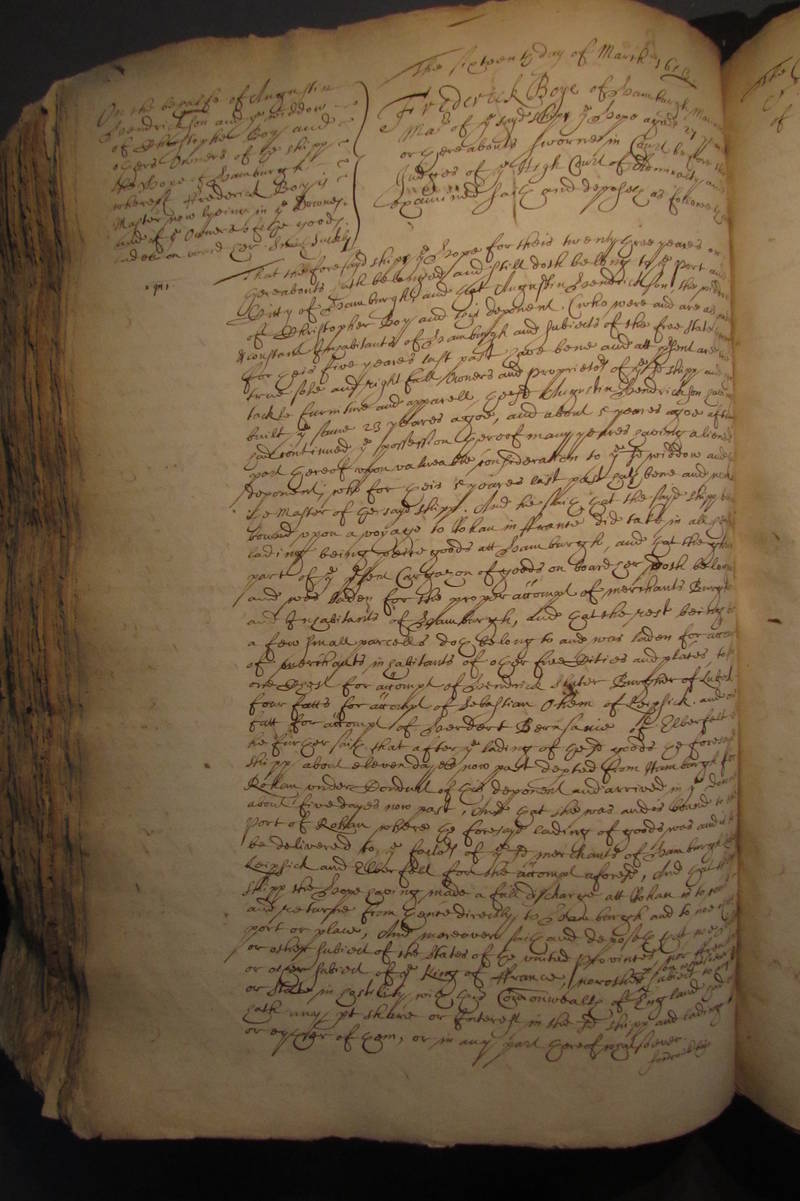 The sixteenth day of March 165
On the behalfe of Augustin
Hendrickson and ye widdow
of Christopher Boy and
others Owners of the shipp
the Hope of Hamburgh
whereof Frederick Boy is
Master now lyeing in ye Downes.
and of ye Owners of the goods
Frederick Boye of Hamburgh
Mar of ye sayd shipp ye Hope aged 27 yeares
or thereabouts sworne in Court before the
Judges of ye High Court of Admiralty and
examined saith and deposeth as followeth
That the foresayd shipp ye Hope for theis twenty three yeares or
thereabouts hath belonged and still doth belong to ye Port and
Citty of Hamburgh, and that Augustin Hendrickson the widdow
of Christopher Boy and this deponent (who were and are all
constant Inhabitants of Hamburgh and subiects of the free State
for theis five yeares last past have bene and att present are the
true sole and right full Owners and Proprietors of ye sd shipp and
tackle furniture and apparell, the sd Augustin Hendrickson haveing
built ye same 23 yeares agoe, and about 5 yeares agoe after
had continued ye possession thereof many yeares haveing aliened
part thereof upon valueable consideration to ye sd widdow and
deponent, who for theis 5 yeares last past hath bene and now
is Master of the sayd shipp. And he saith that the sayd shipp
bound upon a voyage to Rohan in ffrance did take in all
lading being goods att Hamburgh, and that the
part of ye present Cargazon of goods on board her doth belong
and was laden for the proper accompt of merchants Burghers
and Inhabitants of Hamburgh, and that the rest being
a few small parcells doth belong to and was laden for accompt
of merchants inhabitants of other free Citties and places, to
one Chest for accompt of Hendrick Burgher of Lubeck
four fatts for accompt of Sebastian of Leipsick. and one
fatt for accompt of of Elberfelt
he further saith that after ye lading of the sd goods the foresayd
shipp about eleven dayes now past depted from Hamburgh for
Rohan under Conduct of this deponent and arrived in ye Downes
about five dayes now past, And that she was and is bound to the
Port of Rohan where the foresayd lading of goods was and is to
be delivered to ye factors of ye sd merchants of Hamburgh
Leipsick and Elberfelt for the accompt aforesd, And that the
shipp the Hope haveing made a full discharge att Rohan is to
and returne from thence directly to Hamburgh and to noe other
port or place, And moreover saith and deposeth that noe
or other subiect of the States of the united Provinces, nor
or other subiect of ye King of ffrance, nor other subiect
or State in hostility with this Commonwealth of England
hath any pt share or Interest in the sd shipp and lading
or eyther of them, or in any part thereof whatsoever.